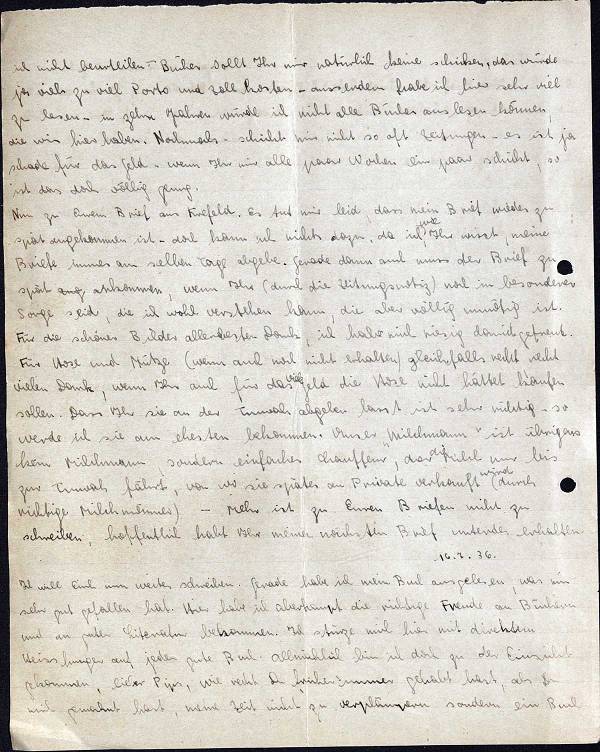 ich nicht beurteilen. – Bücher sollt Ihr mir natürlich keine schicken, das würde
ja viel zu viel Porto und Zoll kosten – ausserdem habe ich hier sehr viel
zu lesen – in zehn Jahren würde ich nicht alle Bücher auslesen können,
die wir hier haben. Nochmals – schickt mir nicht so oft Zeitungen – es ist ja
schade für das Geld – wenn Ihr mir alle paar Wochen ein paar schickt, so
ist das doch völlig genug.
Nun zu Eurem Brief aus Krefeld. Es tut mir leid, dass mein Brief wieder zu
spät angekommen ist – doch kann ich nichts dazu, da ich, wie Ihr wisst, meine
Briefe immer am selben Tage abgebe. Gerade dann auch muss der Brief zu
spät ankommen, wenn Ihr (durch die Zeitungsnotiz) noch in besonderer
Sorge seid, die ich wohl verstehen kann, die aber völlig unnötig ist.
Für die schönen Bilder allerbesten Dank, ich habe mich riesig damit gefreut.
Für Hose und Mütze (wenn auch noch nicht erhalten) gleichfalls recht recht
vielen Dank, wenn Ihr auch für das viele Geld die Hose nicht hättet kaufen
sollen. Dass Ihr sie an der Tnuvah abgeben lasst ist sehr richtig – so
werde ich sie am ehesten bekommen. Unser „Milchmann" ist übrigens
kein Milchmann, sondern einfacher Chauffeur, der die Milch nur bis
zur Tnuvah fährt, von wo sie später an Private verkauft wird (durch
richtige Milchmänner) – Mehr ist zu Euren Briefen nicht zu
schreiben, hoffentlich habt Ihr meinen nächsten Brief unterdes erhalten.
16.2.36.
Ich will Euch nun weiter schreiben. Gerade habe ich mein Buch ausgelesen, was mir
sehr gut gefallen hat. Hier habe ich überhaupt die richtige Freude an Büchern
und an guter Literatur bekommen. Ich stürze mich hier mit direktem
Heisshunger auf jedes gute Buch. Allmählich bin ich doch zu der Einsicht
gekommen, lieber Pips, wie recht Du früher immer gehabt hast, als Du
mich gemahnt hast, meine Zeit nicht zu verplämpern sondern ein Buch